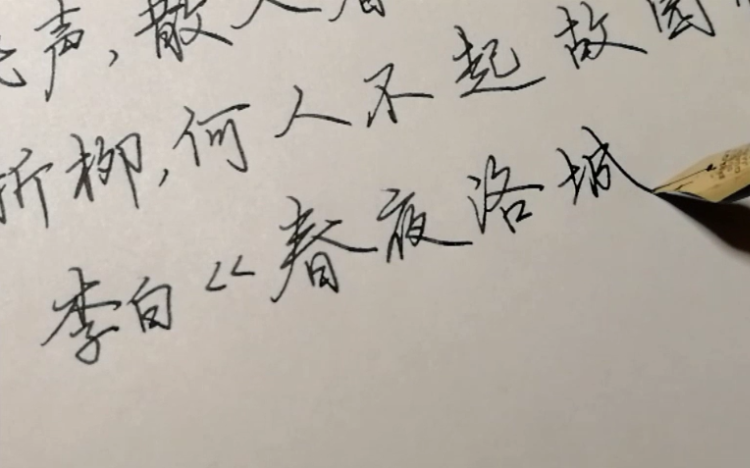 声,散入春
折柳,何人不起故园
李白《春夜洛城